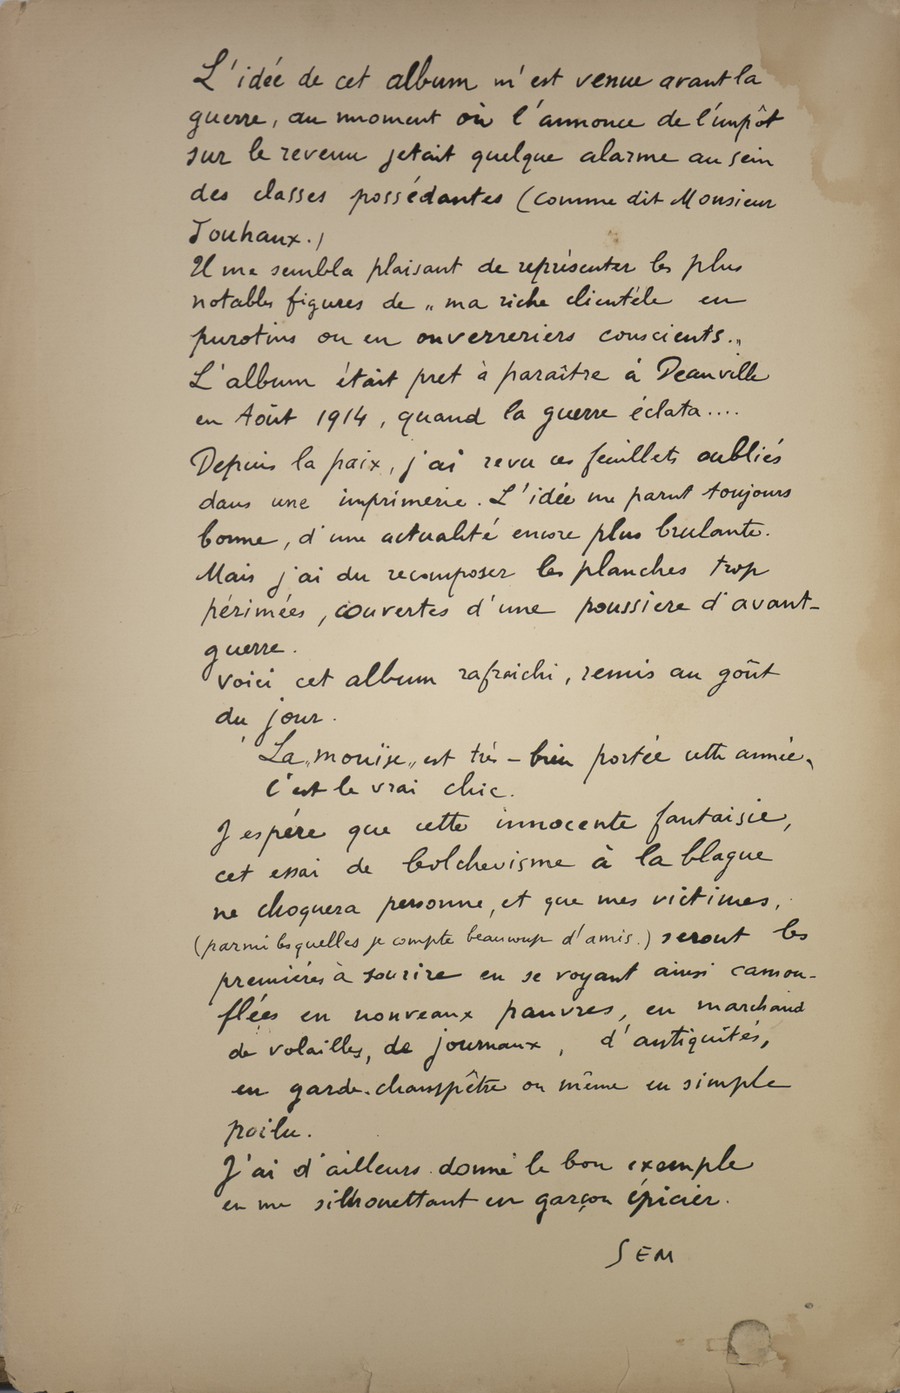 L'idée de cet album m'est venue avant la
guerre, au moment où l'annonce de l'impôt
sur le revenu jetait quelque alarme au sein
des classes possédantes (comme dit Monsieur
Jouhaux.)
Il me sembla plaisant de représenter les plus
notables figures de „ma riche clientèle en
purotins ou en onverreriers conscients.„
L'album était pret à paraître à Deauville
en Août 1914, quand la guerre éclata....
Depuis la paix, j'ai revu ces feuillets oubliés
dans une imprimerie. L'idée me parut toujours
bonne, d'une actualité encore plus brulante.
Mais j'ai du recomposer les planches trop
périmées, couvertes d'une poussiere d'avant-
guerre.
Voici cet album rafraichi, remis au goût
du jour.
La „mouïse„ est très-bien portée cette année,
C'est le vrai chic.
J'espére que cette innocente fantaisie,
cet essai de bolchevisme à la blague
ne choquera personne, et que mes victimes,
(parmi lesquelles je compte beaucoup d'amis.) seront les
premiéres à sourire en se voyant ainsi camou-
flées en nouveaux pauvres, en marchand
de volailles, de journaux, d'antiquités,
en garde-champêtre ou même en simple
poilu.
J'ai d'ailleurs donné le bon exemple
en me silhouettant en garçon épicier.
SEM